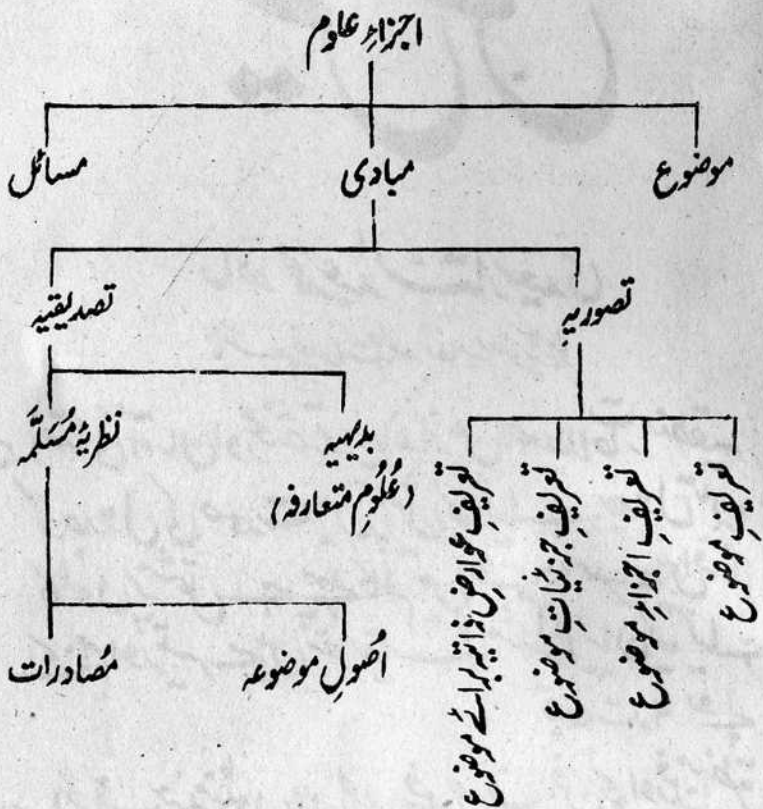 اجزاءِ علوم
موضوع
مبادی
مسائل
تصوریہ
تصدیقیہ
تعریفِ موضوع
تعریفِ اجزاءِ موضوع
تعریفِ جزئیاتِ موضوع
تعریفِ عوارضِ ذاتیہ برائے موضوع
بدیہیہ
(عُلُومِ متعارفہ)
نظریۂ مُسَلَّمَہ
اُصُولِ موضوعہ
مُصَادرات